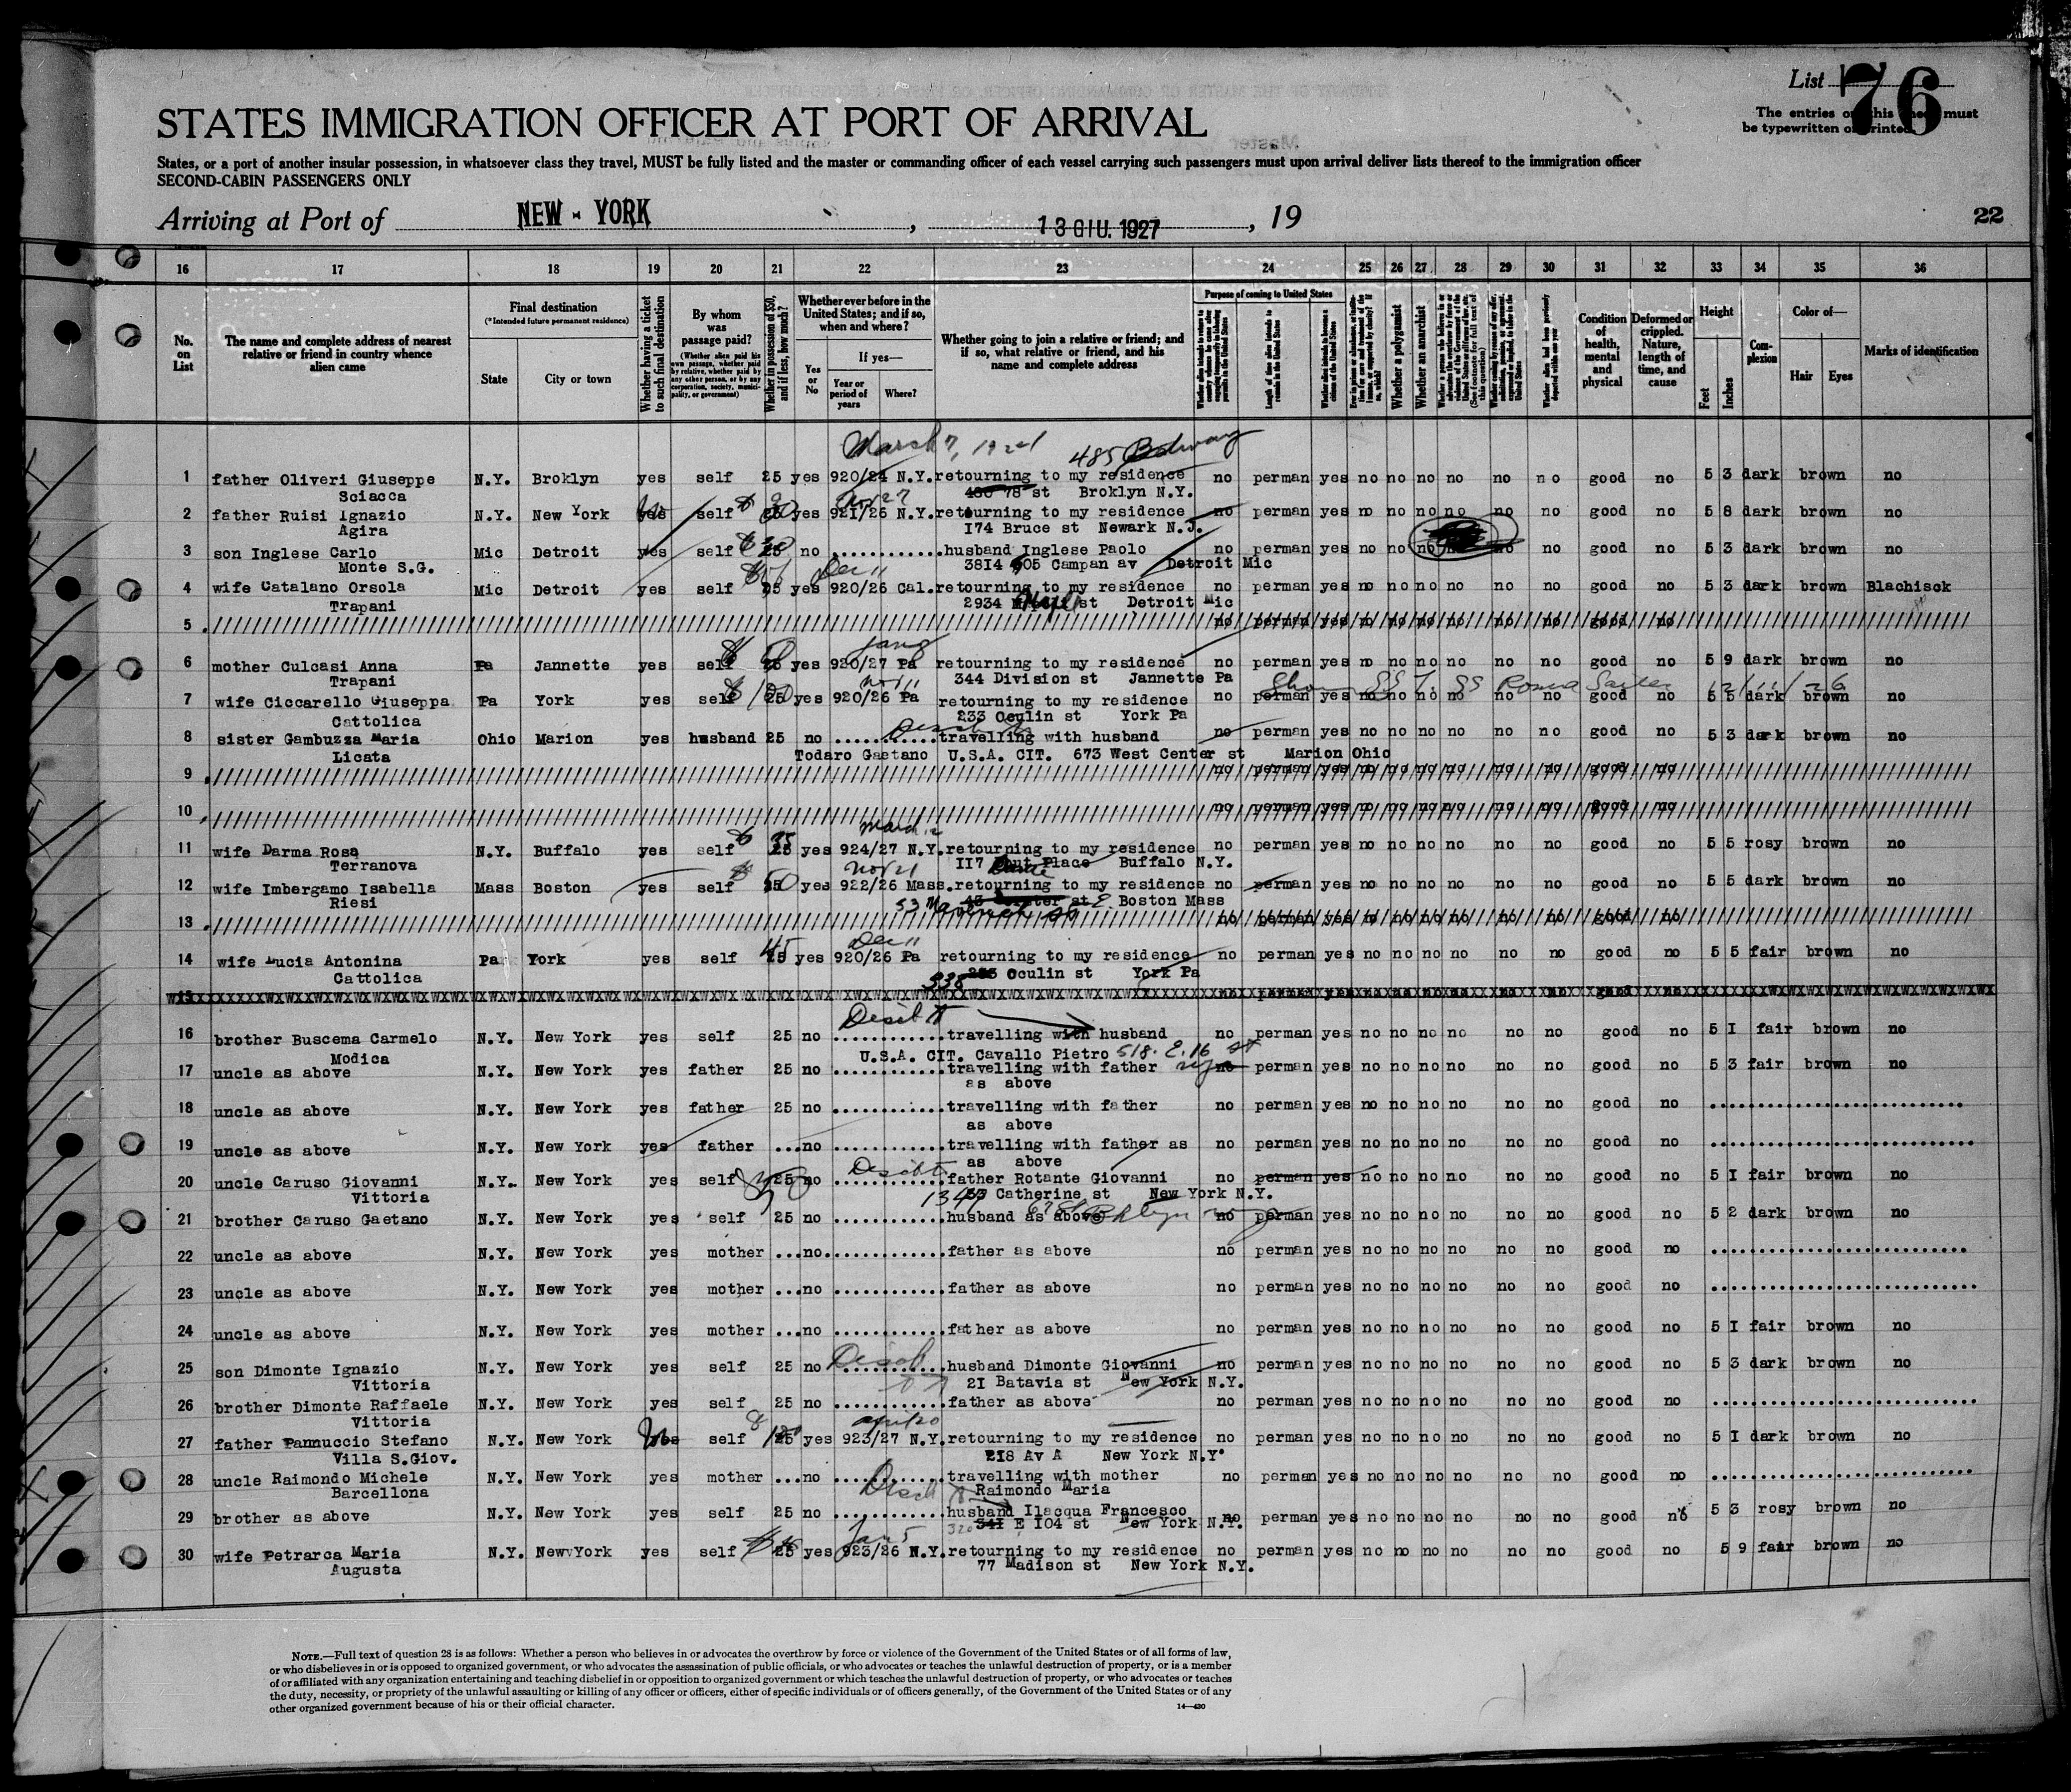 List 76
The entries on this sheet must
be typewritten or printed
STATES IMMIGRATION OFFICER AT PORT OF ARRIVAL
States, or a port of another insular possession, in whatsoever class they travel, MUST be fully listed and the master or commanding officer of each vessel carrying such passengers must upon arrival deliver lists thereof to the immigration officer
SECOND-CABIN PASSENGERS ONLY
Arriving at Port of NEW - YORK , 13 GIU. 1927 , 19
22
16 17 18 19 20 21 22 23 24 25 26 27 28 29 30 31 32 33 34 35 36
No. on List
The name and complete address of nearest relative or friend in country whence alien came
Final destination
(*Intended future permanent residence)
State
City or town
Whether having a ticket to such final destination
By whom was passage paid?
(Whether alien paid his own passage, whether paid by relative, whether paid by any other person, or by any corporation, society, municipality, or government)
Whether in possession of $50, and if less, how much?
Whether ever before in the United States; and if so, when and where?
Yes or No
If yes—
Year or period of years
Where?
Whether going to join a relative or friend; and if so, what relative or friend, and his name and complete address
Purpose of coming to United States
Length of time alien intends to remain in the United States
Whether alien intends to become a citizen of the United States
Whether a polygamist
Whether an anarchist
Condition of health, mental and physical
Deformed or crippled. Nature, length of time, and cause
Height
Feet
Inches
Complexion
Color of—
Hair
Eyes
Marks of identification
March 7, 1924 485
1 father Oliveri Giuseppe N.Y. Broklyn yes self 25 yes 920/24 N.Y. retourning to my residence no perman yes no no no no no no good no 5 3 dark brown no
Sciacca 78 st Broklyn N.Y.
2 father Ruisi Ignazio N.Y. New York yes self yes 921/26 N.Y. retourning to my residence no perman yes no no no no no no good no 5 8 dark brown no
Agira 174 Bruce st Newark N.J.
3 son Inglese Carlo Mic Detroit yes self 25 no husband Inglese Paolo no perman yes no no no no no good no 5 3 dark brown no
Monte S.G. 3814 Campan av Detroit Mic
Dec 11
4 wife Catalano Orsola Mic Detroit yes self yes 920/26 Cal. retourning to my residence no perman yes no no no no no no good no 5 3 dark brown Blachisck
Trapani 2934 st Detroit Mic
5 no perman yes no no no no no no good no
6 mother Culcasi Anna Pa Jannette yes self 25 yes 920/27 Pa retourning to my residence no perman yes no no no no no no good no 5 9 dark brown no
Trapani 344 Division st Jannette Pa
7 wife Ciccarello Giuseppa Pa York yes self 25 yes 920/26 Pa retourning to my residence no perman yes no no no no no no good no 5 5 dark brown no
Cattolica 233 Oculin st York Pa
8 sister Gambuzza Maria Ohio Marion yes husband 25 no travelling with husband no perman yes no no no no no no good no 5 3 dark brown no
Licata Todaro Gaetano U.S.A. CIT. 673 West Center st Marion Ohio
9 no perman yes no no no no no no good no
10 no perman yes no no no no no no good no
11 wife Darma Rosa N.Y. Buffalo yes self 25 yes 924/27 N.Y. retourning to my residence no perman yes no no no no no no good no 5 5 rosy brown no
Terranova 117 Place Buffalo N.Y.
12 wife Imbergamo Isabella Mass Boston yes self yes 922/26 Mass. retourning to my residence no perman yes no no no no no no good no 5 5 dark brown no
Riesi Boston Mass
53 Maverick St
13 no perman yes no no no no no no good no
Dec 11
14 wife Lucia Antonina Pa York yes self 25 yes 920/26 Pa retourning to my residence no perman yes no no no no no no good no 5 5 fair brown no
Cattolica Oculin st York Pa
338
15
16 brother Buscema Carmelo N.Y. New York yes self 25 no travelling with husband no perman yes no no no no no no good no 5 1 fair brown no
Modica U.S.A. CIT. Cavallo Pietro 518 E. 16 st
17 uncle as above N.Y. New York yes father 25 no travelling with father no perman yes no no no no no no good no 5 3 fair brown no
as above
18 uncle as above N.Y. New York yes father 25 no travelling with father no perman yes no no no no no no good no
as above
19 uncle as above N.Y. New York yes father ...no travelling with father as no perman yes no no no no no no good no
as above
20 uncle Caruso Giovanni N.Y. New York yes self 25 no father Rotante Giovanni no perman yes no no no no no no good no 5 1 fair brown no
Vittoria Catherine st New York N.Y.
21 brother Caruso Gaetano N.Y. New York yes self 25 no husband as above no perman yes no no no no no no good no 5 2 dark brown no
22 uncle as above N.Y. New York yes mother ...no father as above no perman yes no no no no no no good no
23 uncle as above N.Y. New York yes mother ...no father as above no perman yes no no no no no no good no
24 uncle as above N.Y. New York yes mother ...no father as above no perman yes no no no no no no good no 5 1 fair brown no
25 son Dimonte Ignazio N.Y. New York yes self 25 no husband Dimonte Giovanni no perman yes no no no no no no good no 5 3 dark brown no
Vittoria 21 Batavia st New York N.Y.
26 brother Dimonte Raffaele N.Y. New York yes self 25 no father as above no perman yes no no no no no no good no
Vittoria
27 father Pannuccio Stefano N.Y. New York yes self 25 yes 923/27 N.Y. retourning to my residence no perman yes no no no no no no good no 5 1 dark brown no
Villa S.Giov. 218 Av A New York N.Y.
28 uncle Raimondo Michele N.Y. New York yes mother ...no travelling with mother no perman yes no no no no no no good no
Barcellona Raimondo Maria
29 brother as above N.Y. New York yes self 25 no husband Ilacqua Francesco no perman yes no no no no no no good no 5 3 rosy brown no
320 341 E 104 st New York N.Y.
Jan 5
30 wife Petrarca Maria N.Y. New York yes self 25 yes 923/26 N.Y. retourning to my residence no perman yes no no no no no no good no 5 9 fair brown no
Augusta 77 Madison st New York N.Y.
NOTE.—Full text of question 28 is as follows: Whether a person who believes in or advocates the overthrow by force or violence of the Government of the United States or of all forms of law,
or who disbelieves in or is opposed to organized government, or who advocates the assassination of public officials, or who advocates or teaches the unlawful destruction of property, or is a member
of or affiliated with any organization entertaining and teaching disbelief in or opposition to organized government or which teaches the unlawful destruction of property, or who advocates or teaches
the duty, necessity, or propriety of the unlawful assaulting or killing of any officer or officers, either of specific individuals or of officers generally, of the Government of the United States or of any
other organized government because of his or their official character.
14—430